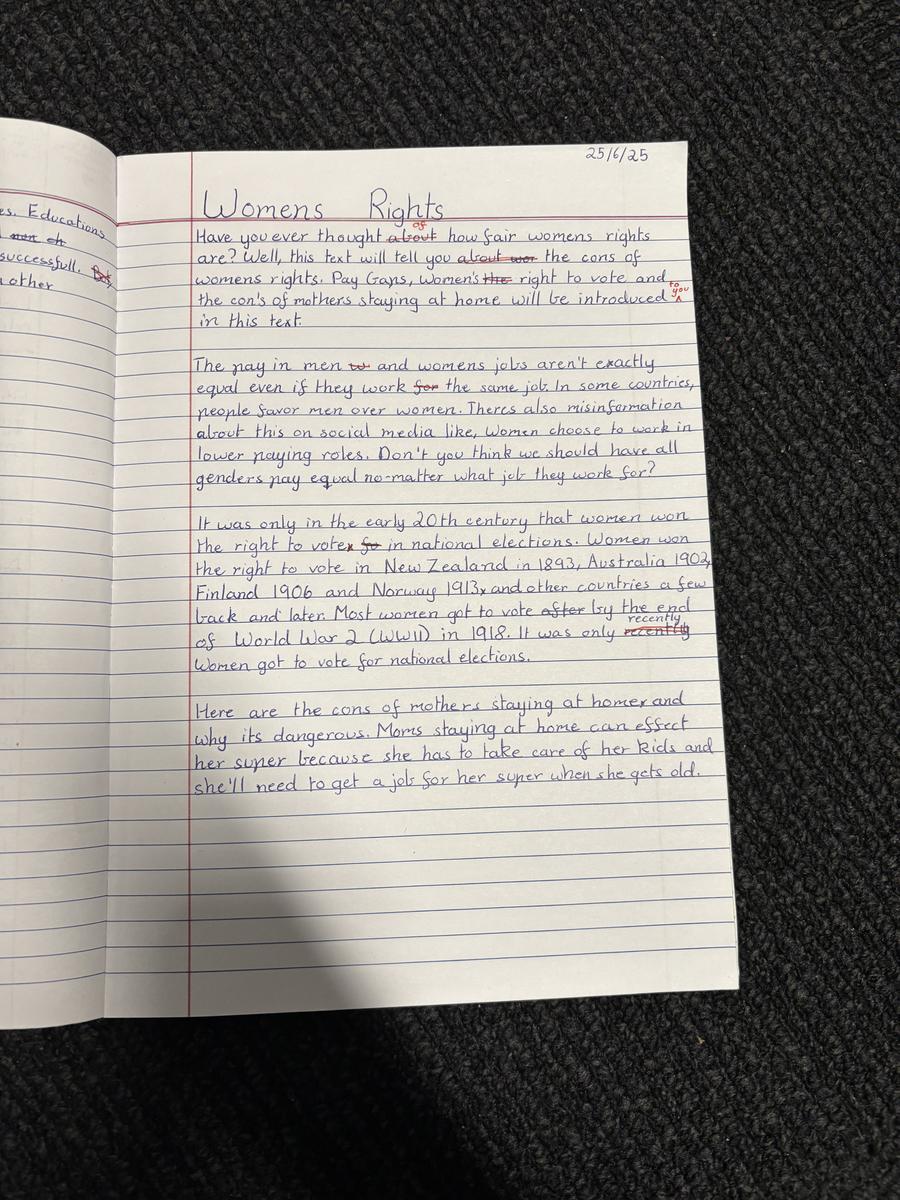 es. Educations
successfull. But,
other
25/6/25
Womens Rights
Have you ever thought about of how fair womens rights
are? Well, this text will tell you about wor the cons of
womens rights. Pay Gaps, Women's the right to vote and
the con's of mothers staying at home will be introduced to you
in this text.
The pay in men w and womens jobs aren't exactly
equal even if they work for the same job. In some countries,
people favor men over women. Theres also misinformation
about this on social media like, Women choose to work in
lower paying roles. Don't you think we should have all
genders pay equal no-matter what job they work for?
It was only in the early 20th century that women won
the right to vote fo in national elections. Women won
the right to vote in New Zealand in 1893, Australia 1902,
Finland 1906 and Norway 1913, and other countries a few
back and later. Most women got to vote after by the end
of World War 2 (WWII) in 1918. It was only recently recently
Women got to vote for national elections.
Here are the cons of mothers staying at home and
why its dangerous. Moms staying at home can effect
her super because she has to take care of her kids and
she'll need to get a job for her super when she gets old.